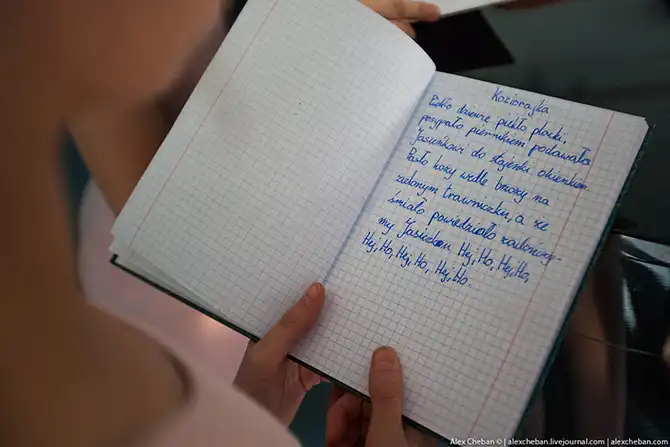 Koziorajka
Piekło dziewczę piekło placki,
posypało piernikiem podawała
Jasieńkowi do stajenki okienkiem.
Pasło kozy wedle brzozy na
zielonym trawniczku, a że
śmiało powiedziało
my Jasieńku Hej, Ho, Hej, Ho,
Hej, Ho, Hej, Ho, Hej, Ho.
Alex Cheban © | alexcheban.livejournal.com | alexcheban.com